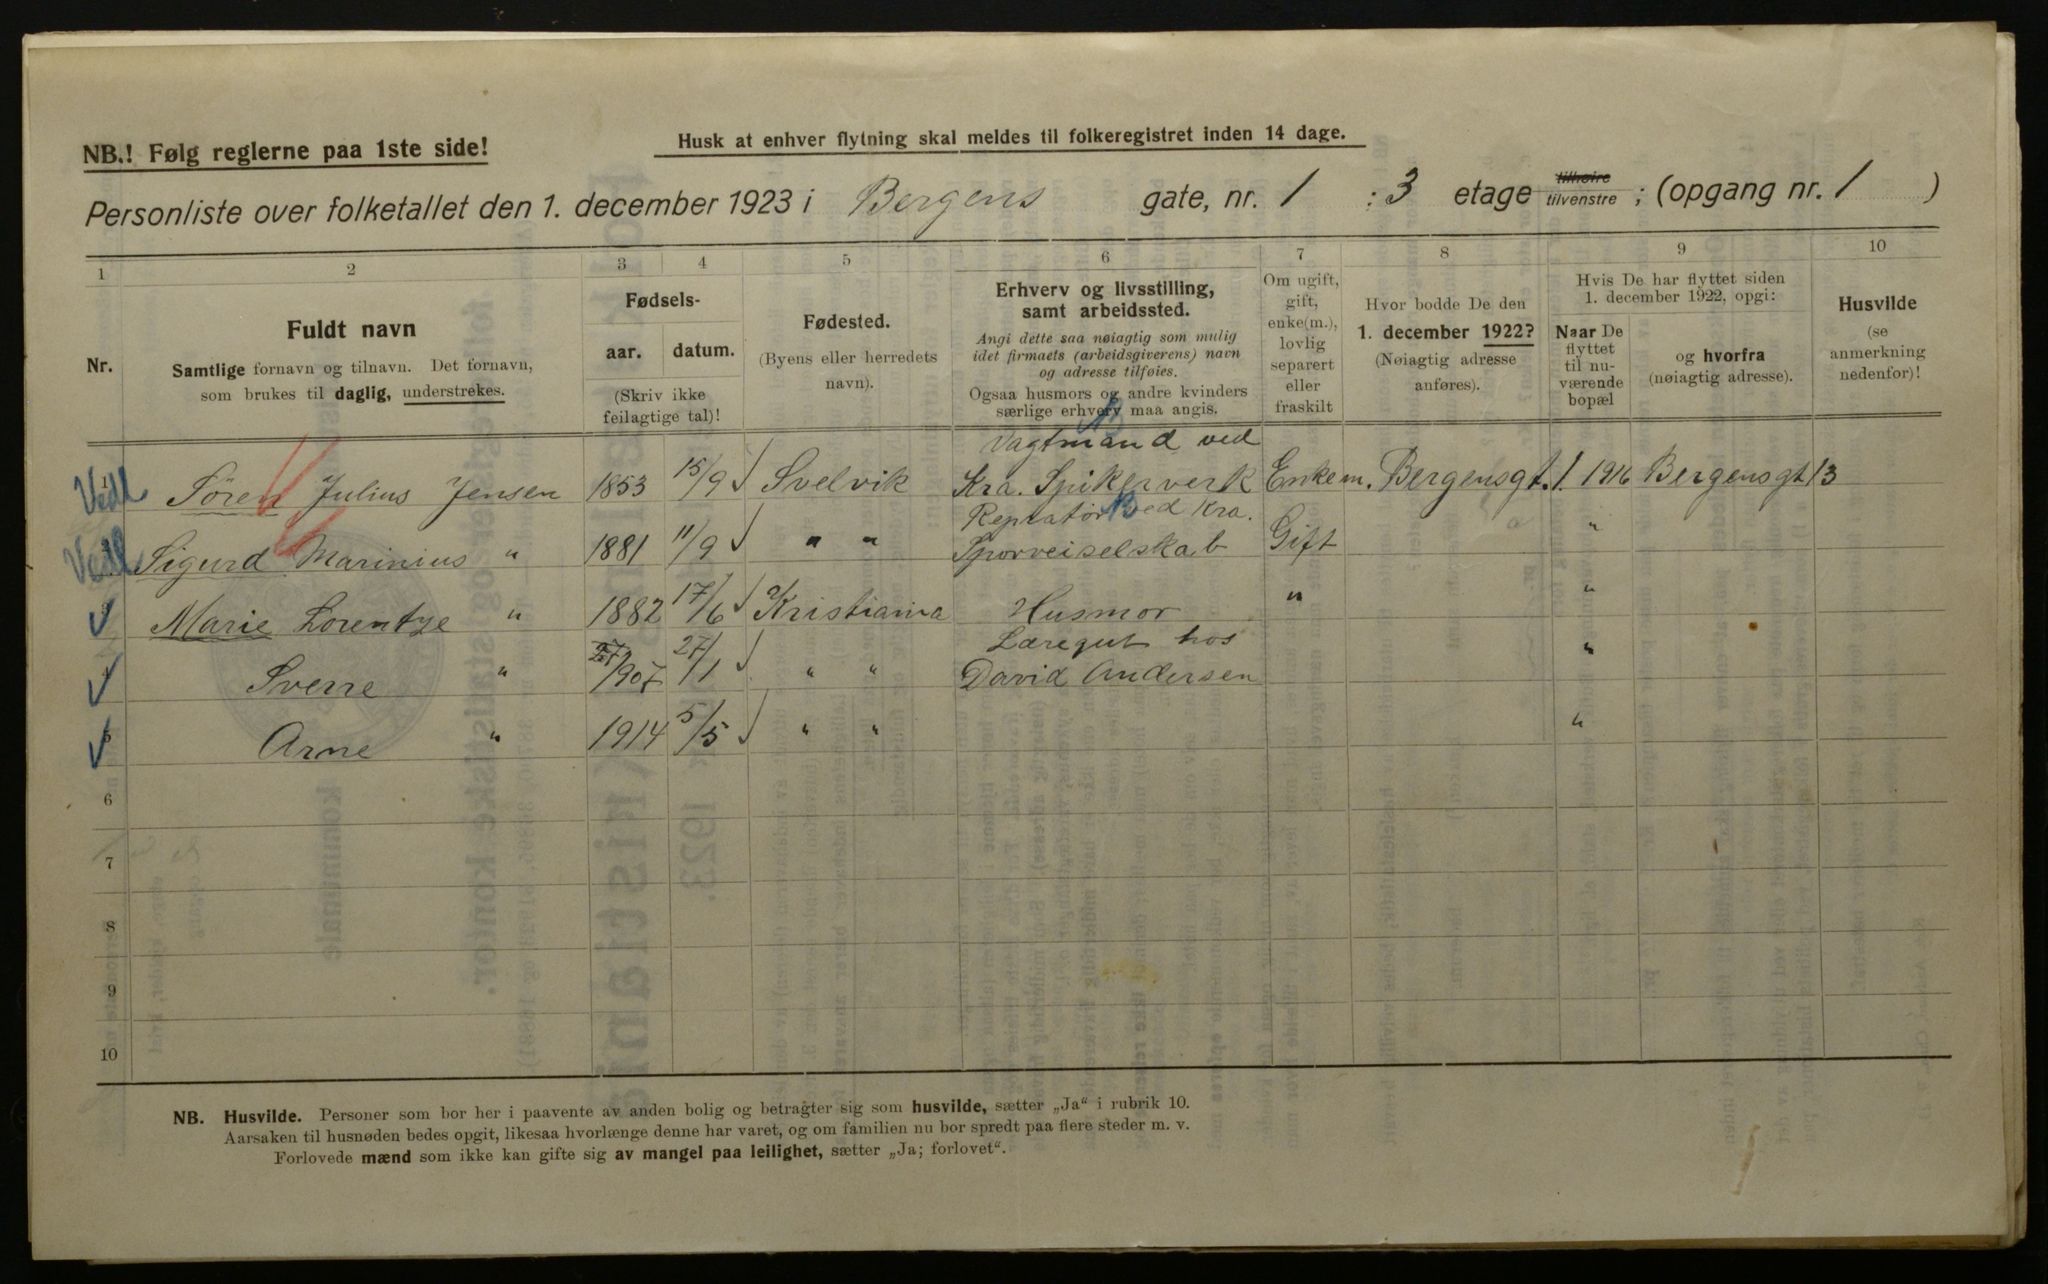 NB.! Følg reglerne paa 1ste side!
Husk at enhver flytning skal meldes til folkeregistret inden 14 dage.
Personliste over folketallet den 1. december 1923 i Bergens gate, nr. 1 : 3 etage tilhøire tilvenstre ; (opgang nr. 1 )
1 2 3 4 5 6 7 8 9 10
Nr.
Fuldt navn
Samtlige fornavn og tilnavn. Det fornavn,
som brukes til daglig, understrekes.
Fødsels-
aar. datum.
(Skriv ikke
feilagtige tal)!
Fødested.
(Byens eller herredets
navn).
Erhverv og livsstilling,
samt arbeidssted.
Angi dette saa nøiagtig som mulig
idet firmaets (arbeidsgiverens) navn
og adresse tilføies.
Ogsaa husmors og andre kvinders
særlige erhverv maa angis.
Om ugift,
gift,
enke(m.),
lovlig
separert
eller
fraskilt
Hvor bodde De den
1. december 1922?
(Nøiagtig adresse
anføres).
Hvis De har flyttet siden
1. december 1922, opgi:
Naar De
flyttet
til nu-
værende
bopæl
og hvorfra
(nøiagtig adresse).
Husvilde
(se
anmerkning
nedenfor)!
Vagtmand ved
Vedl 1 Sören Julius Jensen 1853 15/9 Svelvik Kra. Spikerverk Enkem. Bergensgt. 1. 1916 Bergensgt 13
Repratør ved Kra.
Vedl Sigurd Marinius " 1881 11/9 " " Sporveiselskab Gift "
Marie Lorentze " 1882 17/6 Kristiania Husmor " "
Læregut hos
Sverre " 27 1907 27/1 " " David Andersen "
5 Arne " 1914 5/5 " " "
6
7
8
9
10
NB. Husvilde. Personer som bor her i paavente av anden bolig og betragter sig som husvilde, sætter „Ja“ i rubrik 10.
Aarsaken til husnøden bedes opgit, likesaa hvorlænge denne har varet, og om familien nu bor spredt paa flere steder m. v.
Forlovede mænd som ikke kan gifte sig av mangel paa leilighet, sætter „Ja; forlovet“.